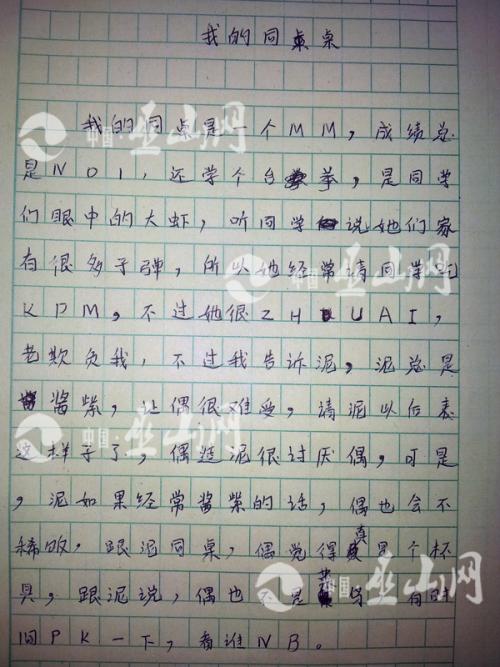 我的同桌
我的同桌是一个MM，成绩总
是NO1，还学个台拳，是同学
们眼中的大虾，听同学说她们家
有很多子弹，所以她经常请同学吃
KPM，不过她很ZHUAI，
老欺负我，不过我告诉泥，泥总是
酱紫，让偶很难受，请泥以后表
这样子了，偶造泥很讨厌偶，可是
，泥如果经常酱紫的话，偶也会不
稀饭，跟泥同桌，偶觉得真是个杯
具，跟泥说，偶也不是菜鸟，有时
间PK一下，看谁NB。
中国·巫山网
中国·巫山网
中国·巫山网
中国·巫山网